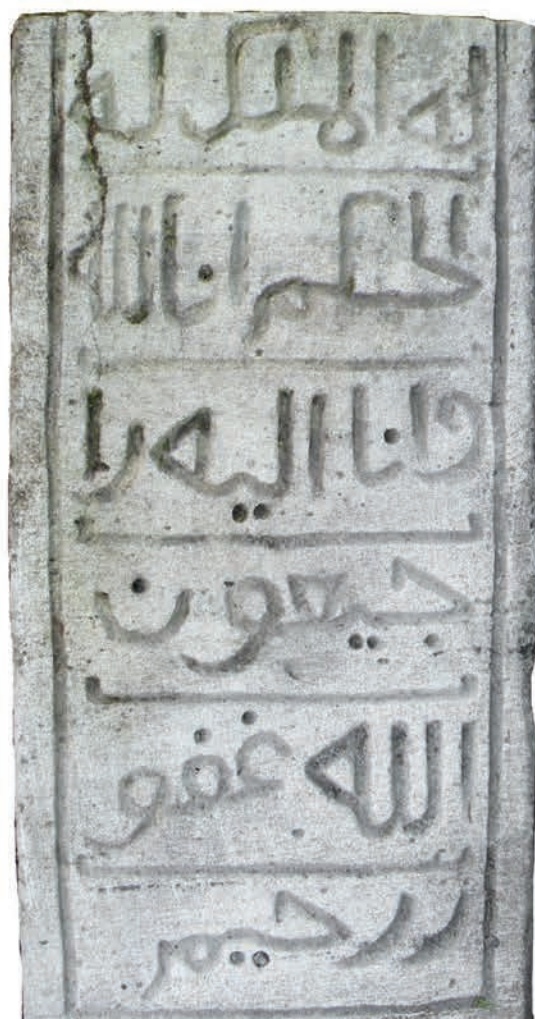 له الملك له
الحكم انا لله
وانا اليه را
جيعون
الله غفو
ر رحيم